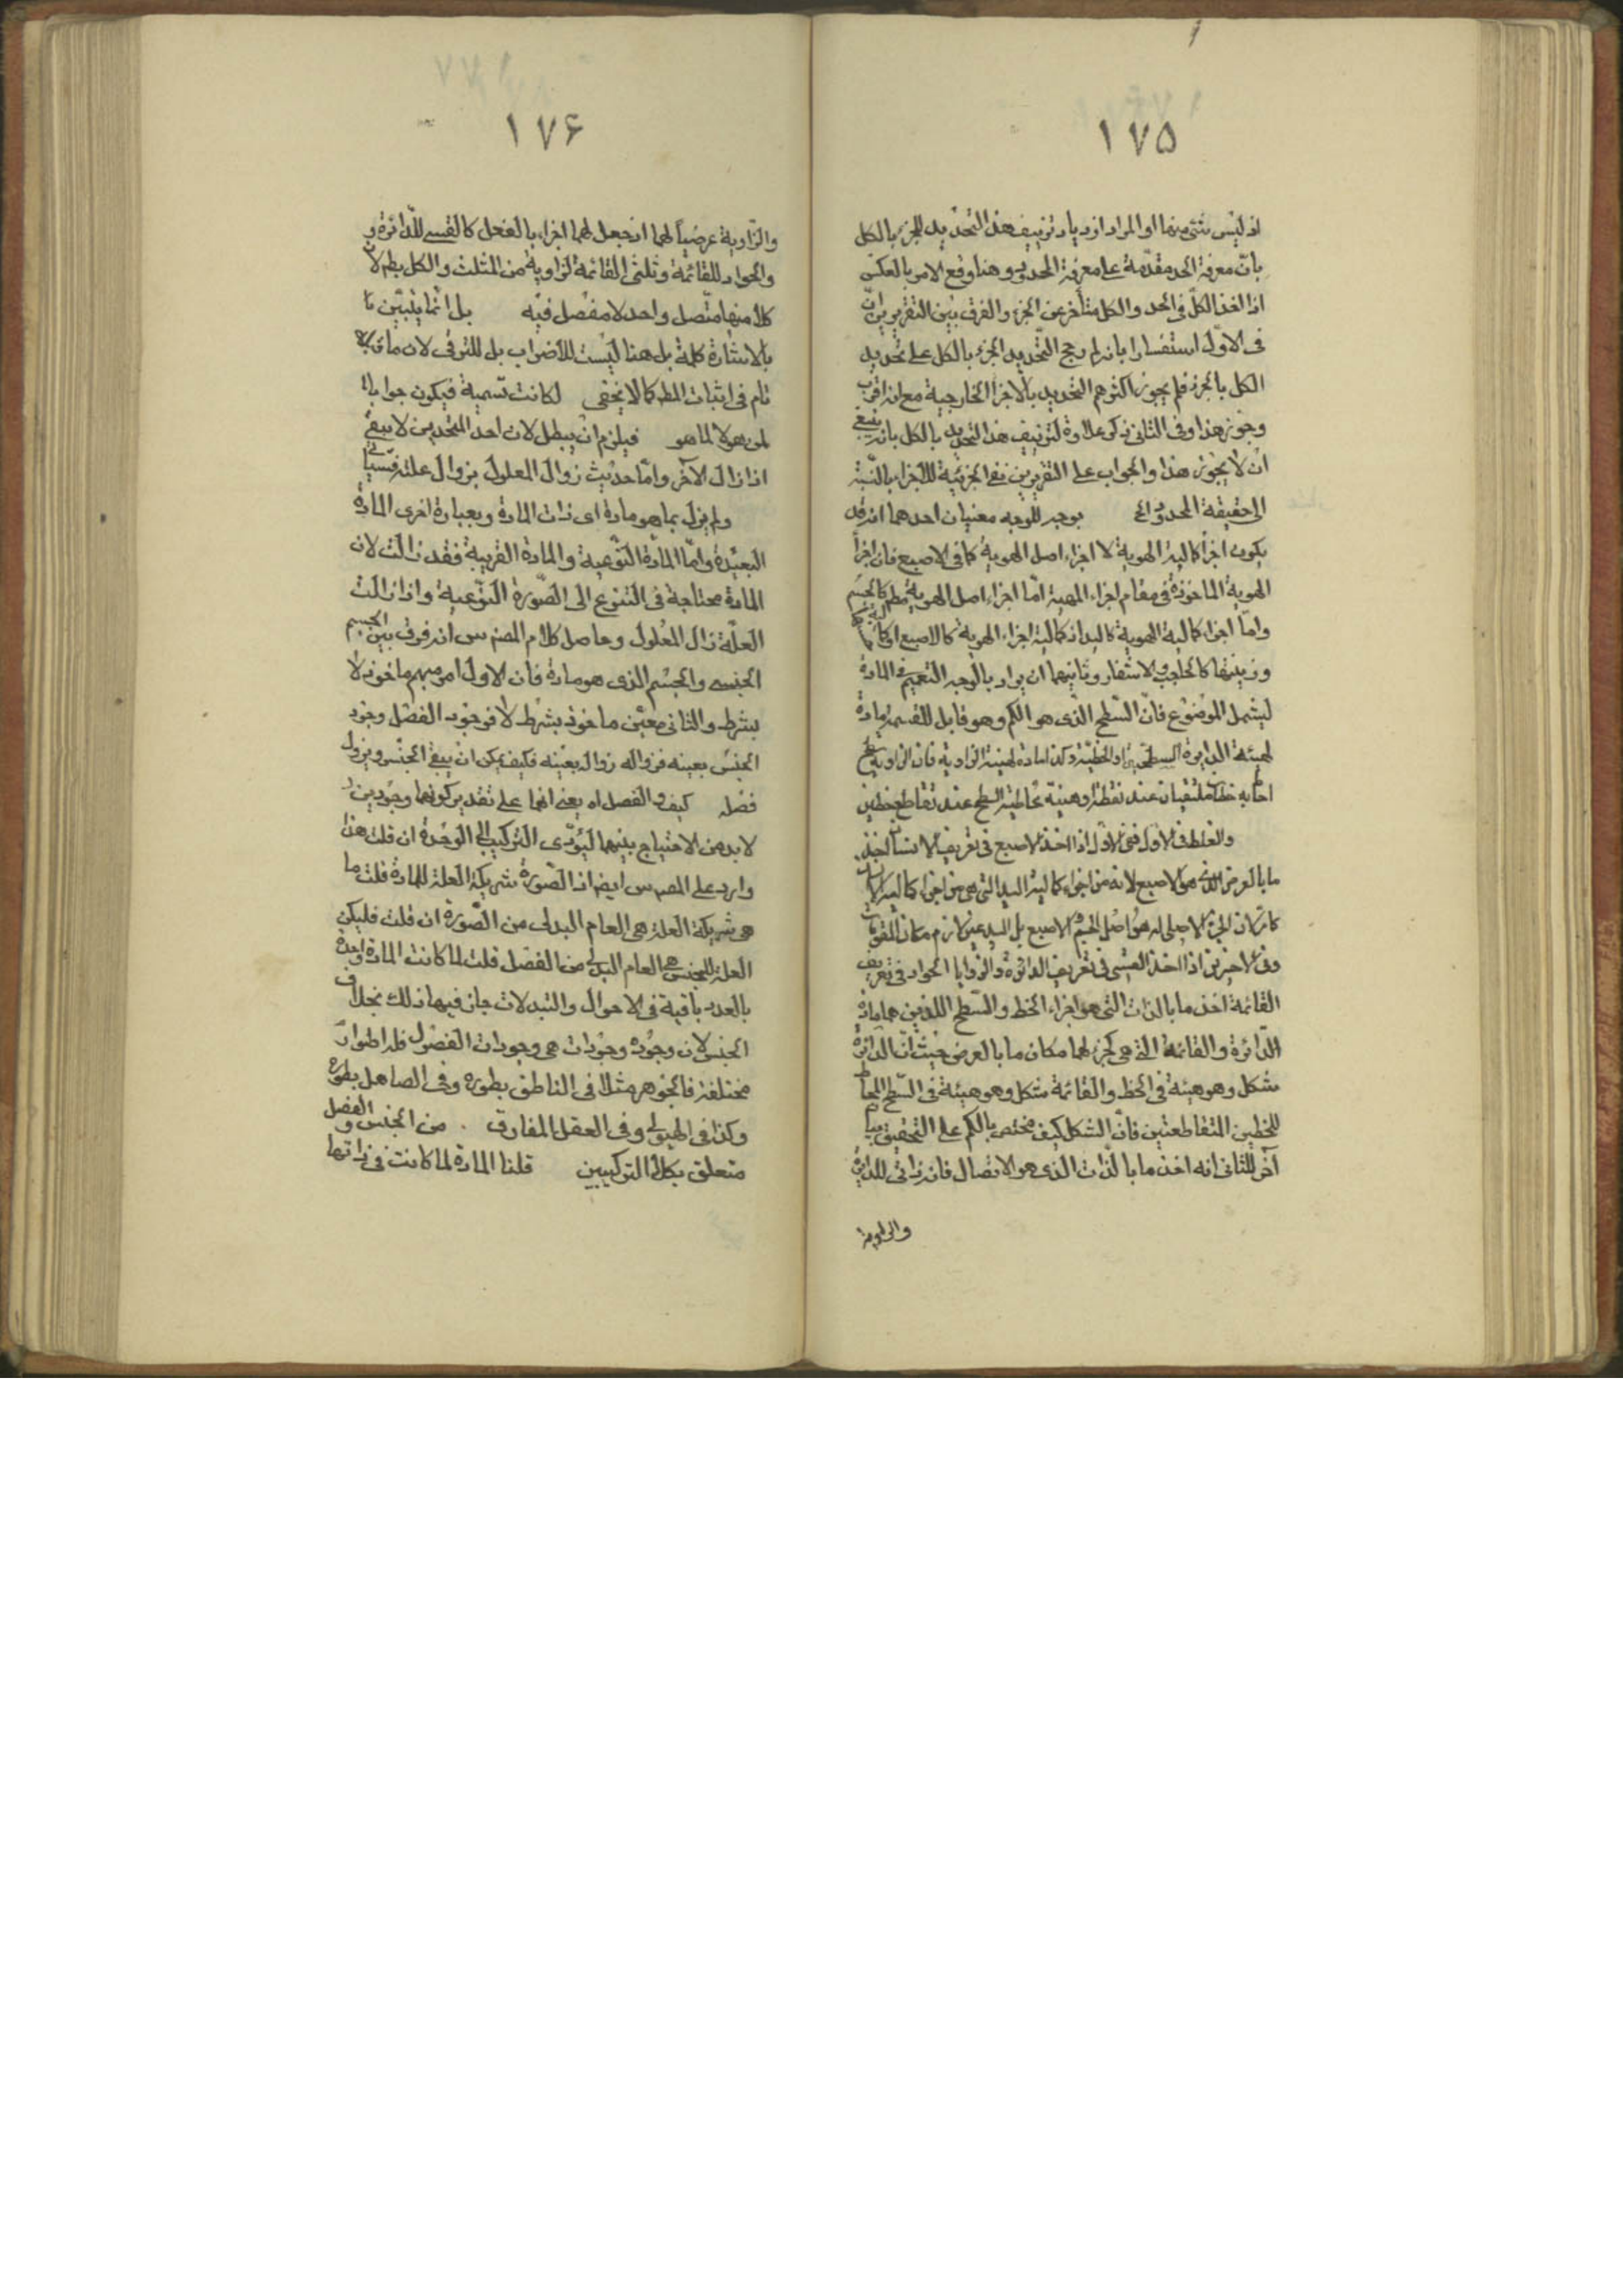 ١٧٥
اذ ليس شئ منهما او المراد ازدياد تزييف هذا التحديد للجزء بالكل
بان معرفة الحد مقدمة على معرفة المحدود وهنا وقع الامر بالعكس
اذا اخذ الكل فى الحد والكل متأخر عن الجزء والفرق بين التقريرين ان
فى الاول استفسارا بانه لم رجح التحديد الجزء بالكل على تحديد
الكل بالجزء فلم يجوز اكثرهم التحديد بالاجزاء الخارجية مع انه اقرب
وجوز هذا وفى الثانى ذكر علاوة لتزييف هذا التحديد بالكل بانه ينبغى
ان لا يجوز هذا والجواب على التقريرين نفى الجزئية للاجزاء بالنسبة
الى حقيقة المحدود بوجه للوجه معنيان احدهما انه قد
يكون اجزاء كمالية الهوية لا اجزاء اصل الهوية كما فى الاصبع فان اجزاء
الهوية الماخوذة فى مقام اجزاء المهية اما اجزاء اصل الهوية كالجسم
واما اجزاء كمالية الهوية كاليد او كمالية اجزاء الهوية كالاصبع
وزينتها كالحاجب والاشفار وثانيهما ان يراد بالوجه التعميم فى المادة
ليشمل الموضوع فان السطح الذى هو الكم وهو قابل للقسمة مادة
لهيئة الدايرة السطحية او الخطية وكذا مادة لهيئة الزاوية فان الزاوية سطح
احاط به خطان ملتقيان عند نقطة او هيئة عند تقاطع خطين
والغلط فى الاول ففى الاول اذا اخذ الاصبع فى تعريف الانسان اخذ
ما بالعرض الذى هو الاصبع لانه من اجزاء كمالية اليد التى هى من اجزاء كمالية
كانه الجزء الاصلى له هو اصل الجسم لا الاصبع بل اليد غير لازم مكان المقومات
وفى الاخيرين اذا اخذ القسى فى تعريف الدائرة والزوايا الحواد فى تعريف
القائمة اخذ ما بالذات التى هو اجزاء الخط والسطح اللذين هما مادة
الدائرة والقائمة التى هى كجزء لهما مكان ما بالعرض حيث ان الدائرة
شكل وهو هيئة فى الخط والقائمة شكل وهو هيئة فى السطح المحاط
للخطين المتقاطعتين فان الشكل كيف مختص بالكم على التحقيق
آخر للثانى انه اخذ ما بالذات الذى هو الاتصال فانه ذاتى للدائرة
والزاوية
١٧۶
والزاوية عرضيا لهما اذ جعل لهما اجزاء بالفعل كالقسى للدائرة و
والحواد للقائمة وثلثى القائمة لزاوية من المثلث والكل بطم لان
كلا منها متصل واحد لا مفصل فيه بل انما يتبين
بالاشارة كلمة بل هنا ليست للاضراب بل للترقى لان ما
تام فى اثبات المطم كما لا يخفى لكانت تسمية فيكون جوابا
لمن هو لا لما هو فيلزم ان يبطل لان احد المتحدين لا يبقى
اذا زال الآخر واما حديث زوال المعلول بزوال علته
ولم يزل بما هو مادة اى ذات المادة وبعبارة اخرى المادة
البعيدة واما المادة النوعية والمادة القريبة فقد زالت لان
المادة محتاجة فى التنوع الى الصورة النوعية واذا زالت
العلة زال المعلول وحاصل كلام المصنف س انه فرق بين الجسم
الجنسى والجسم الذى هو مادة فان الاول امر مبهم ماخوذ لا
بشرط والثانى معين ماخوذ بشرط لا فوجود الفصل وجود
الجنس بعينه فزواله زواله بعينه فكيف يمكن ان يبقى الجنس ويزول
فصله كيف والفصل اه يعنى انهما على تقدير كونهما وجودين
لابد من الاحتياج بينهما ليؤدى التركيب الى الوحدة ان قلت هذا
وارد على المصنف س ايضا اذ الصورة شريكة العلة للمادة قلت ما
هى شريكة العلة هى العام البدلى من الصورة ان قلت فليكن
العلة للجنس هى العام البدلى من الفصل قلت لما كانت المادة واحدة
بالعدد باقية فى الاحوال والتبدلات جاز فيها ذلك بخلاف
الجنس لان وجوده وجودات هى وجودات الفصول فله اطوار
مختلفة فالجوهر مثلا فى الناطق بطوره وفى الصاهل بطوره
وكذا فى الهيولى وفى العقل المفارق من الجنس والفصل
متعلق بكلا التركيبين قلنا المادة لما كانت فى ذاتها